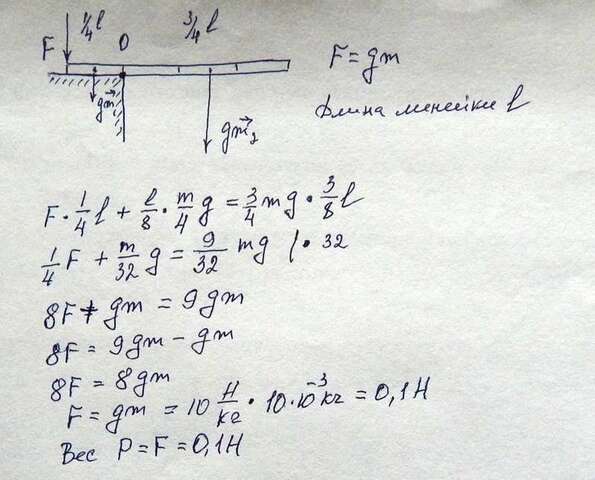 1/4 l 3/4 l
F O
F = gm
gm⃗₁
gm⃗₂
Длина линейки l
F · 1/4 l + l/8 · m/4 g = 3/4 mg · 3/8 l
1/4 F + m/32 g = 9/32 mg | · 32
8F + gm = 9gm
8F = 9gm - gm
8F = 8gm
F = gm = 10 Н/кг · 10·10⁻³ кг = 0,1Н
Вес P = F = 0,1Н